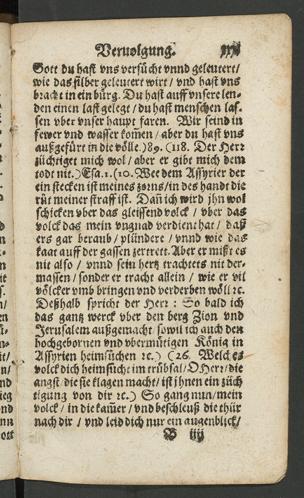 Veruolgung.
Gott du hast vns versücht vnnd geleutert/
wie das silber geleutert wirt / vnd hast vns
bracht in ein bürg. Du hast auff vnsere len-
den einen last gelegt / du hast menschen las-
sen vber vnser haupt faren. Wir seind in
fewer vnd wasser kom̃en / aber du hast vns
außgefürt in die völle.) 89. (118. Der Herr
züchtiget mich wol / aber er gibt mich dem
todt nit.) Esa. 1. (10. Wee dem Assyrier der
ein stecken ist meines zorns / in des handt die
rüt meiner straff ist. Dañ ich wird jhn wol
schicken vber das gleissend volck / vber das
volck das mein vngnad verdienet hat / daß
ers gar beraub / plündere / vnnd wie das
kaat auff der gassen zertrett. Aber er mißt es
nit also / vnnd sein hertz trachtets nit der-
massen / sonder er tracht allein / wie er vil
völcker vmb bringen vnd verderben wöll ꝛc.
Deßhalb spricht der Herr : So bald ich
das gantz werck vber den berg Zion vnd
Jerusalem außgemacht so will ich auch den
hochgebornen vnd vbermütigen König in
Assyrien heimsüchen ꝛc.) (26. Welches
volck dich heimsücht im trübsal / O Herr / die
angst die sie klagen macht / ist jhnen ein züch
tigung von dir ꝛc.) So gang nun / mein
volck / in die kam̃er / vnd beschleuß die thür
nach dir / vnd leid dich nur ein augenblick /
B iiij